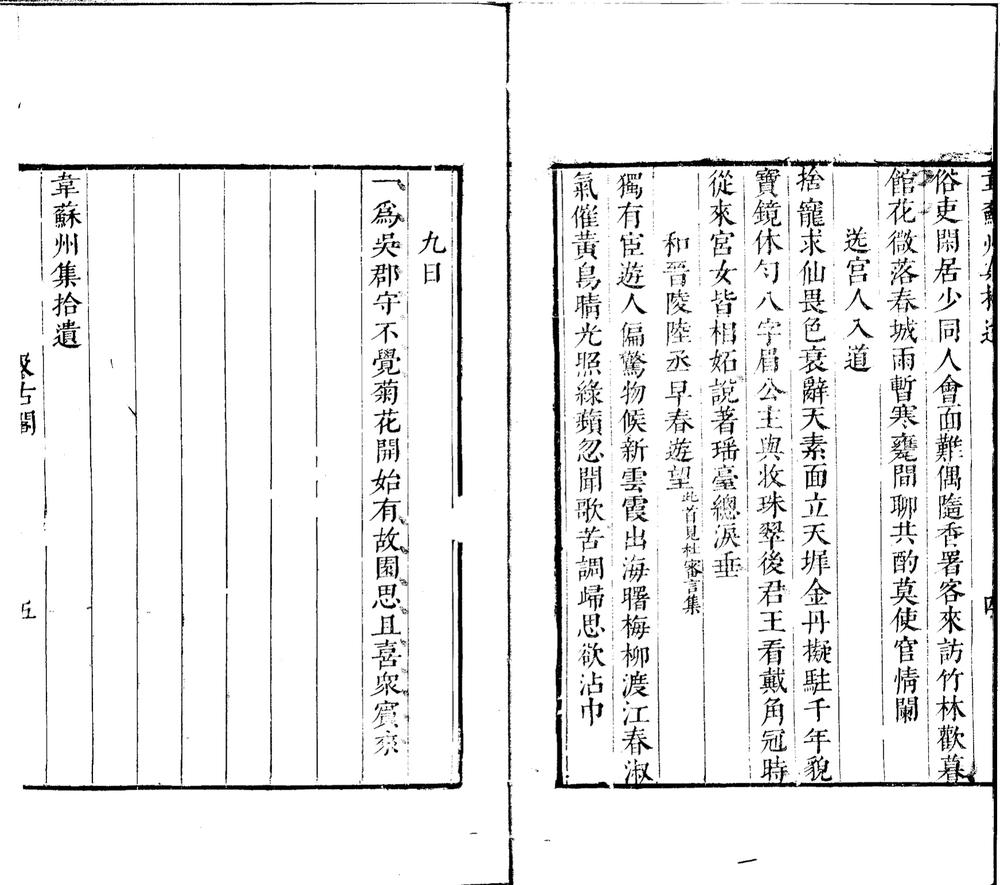 韋蘇州集拾遺
四
俗吏閑居少同人會面難偶隨香署客來訪竹林歡暮
館花微落春城雨暫寒甕間聊共酌莫使宦情闌
送宮人入道
捨寵求仙畏色衰辭天素面立天墀金丹擬駐千年貌
寶鏡休勻八字眉公主與收珠翠後君王看戴角冠時
從來宮女皆相妬說著瑤臺總淚垂
和晉陵陸丞早春遊望此首見杜審言集
獨有宦遊人偏驚物候新雲霞出海曙梅柳渡江春淑
氣催黃鳥晴光照綠蘋忽聞歌苦調歸思欲沾巾
九日
一爲吳郡守不覺菊花開始有故園思且喜衆賓來
韋蘇州集拾遺
五
汲古閣